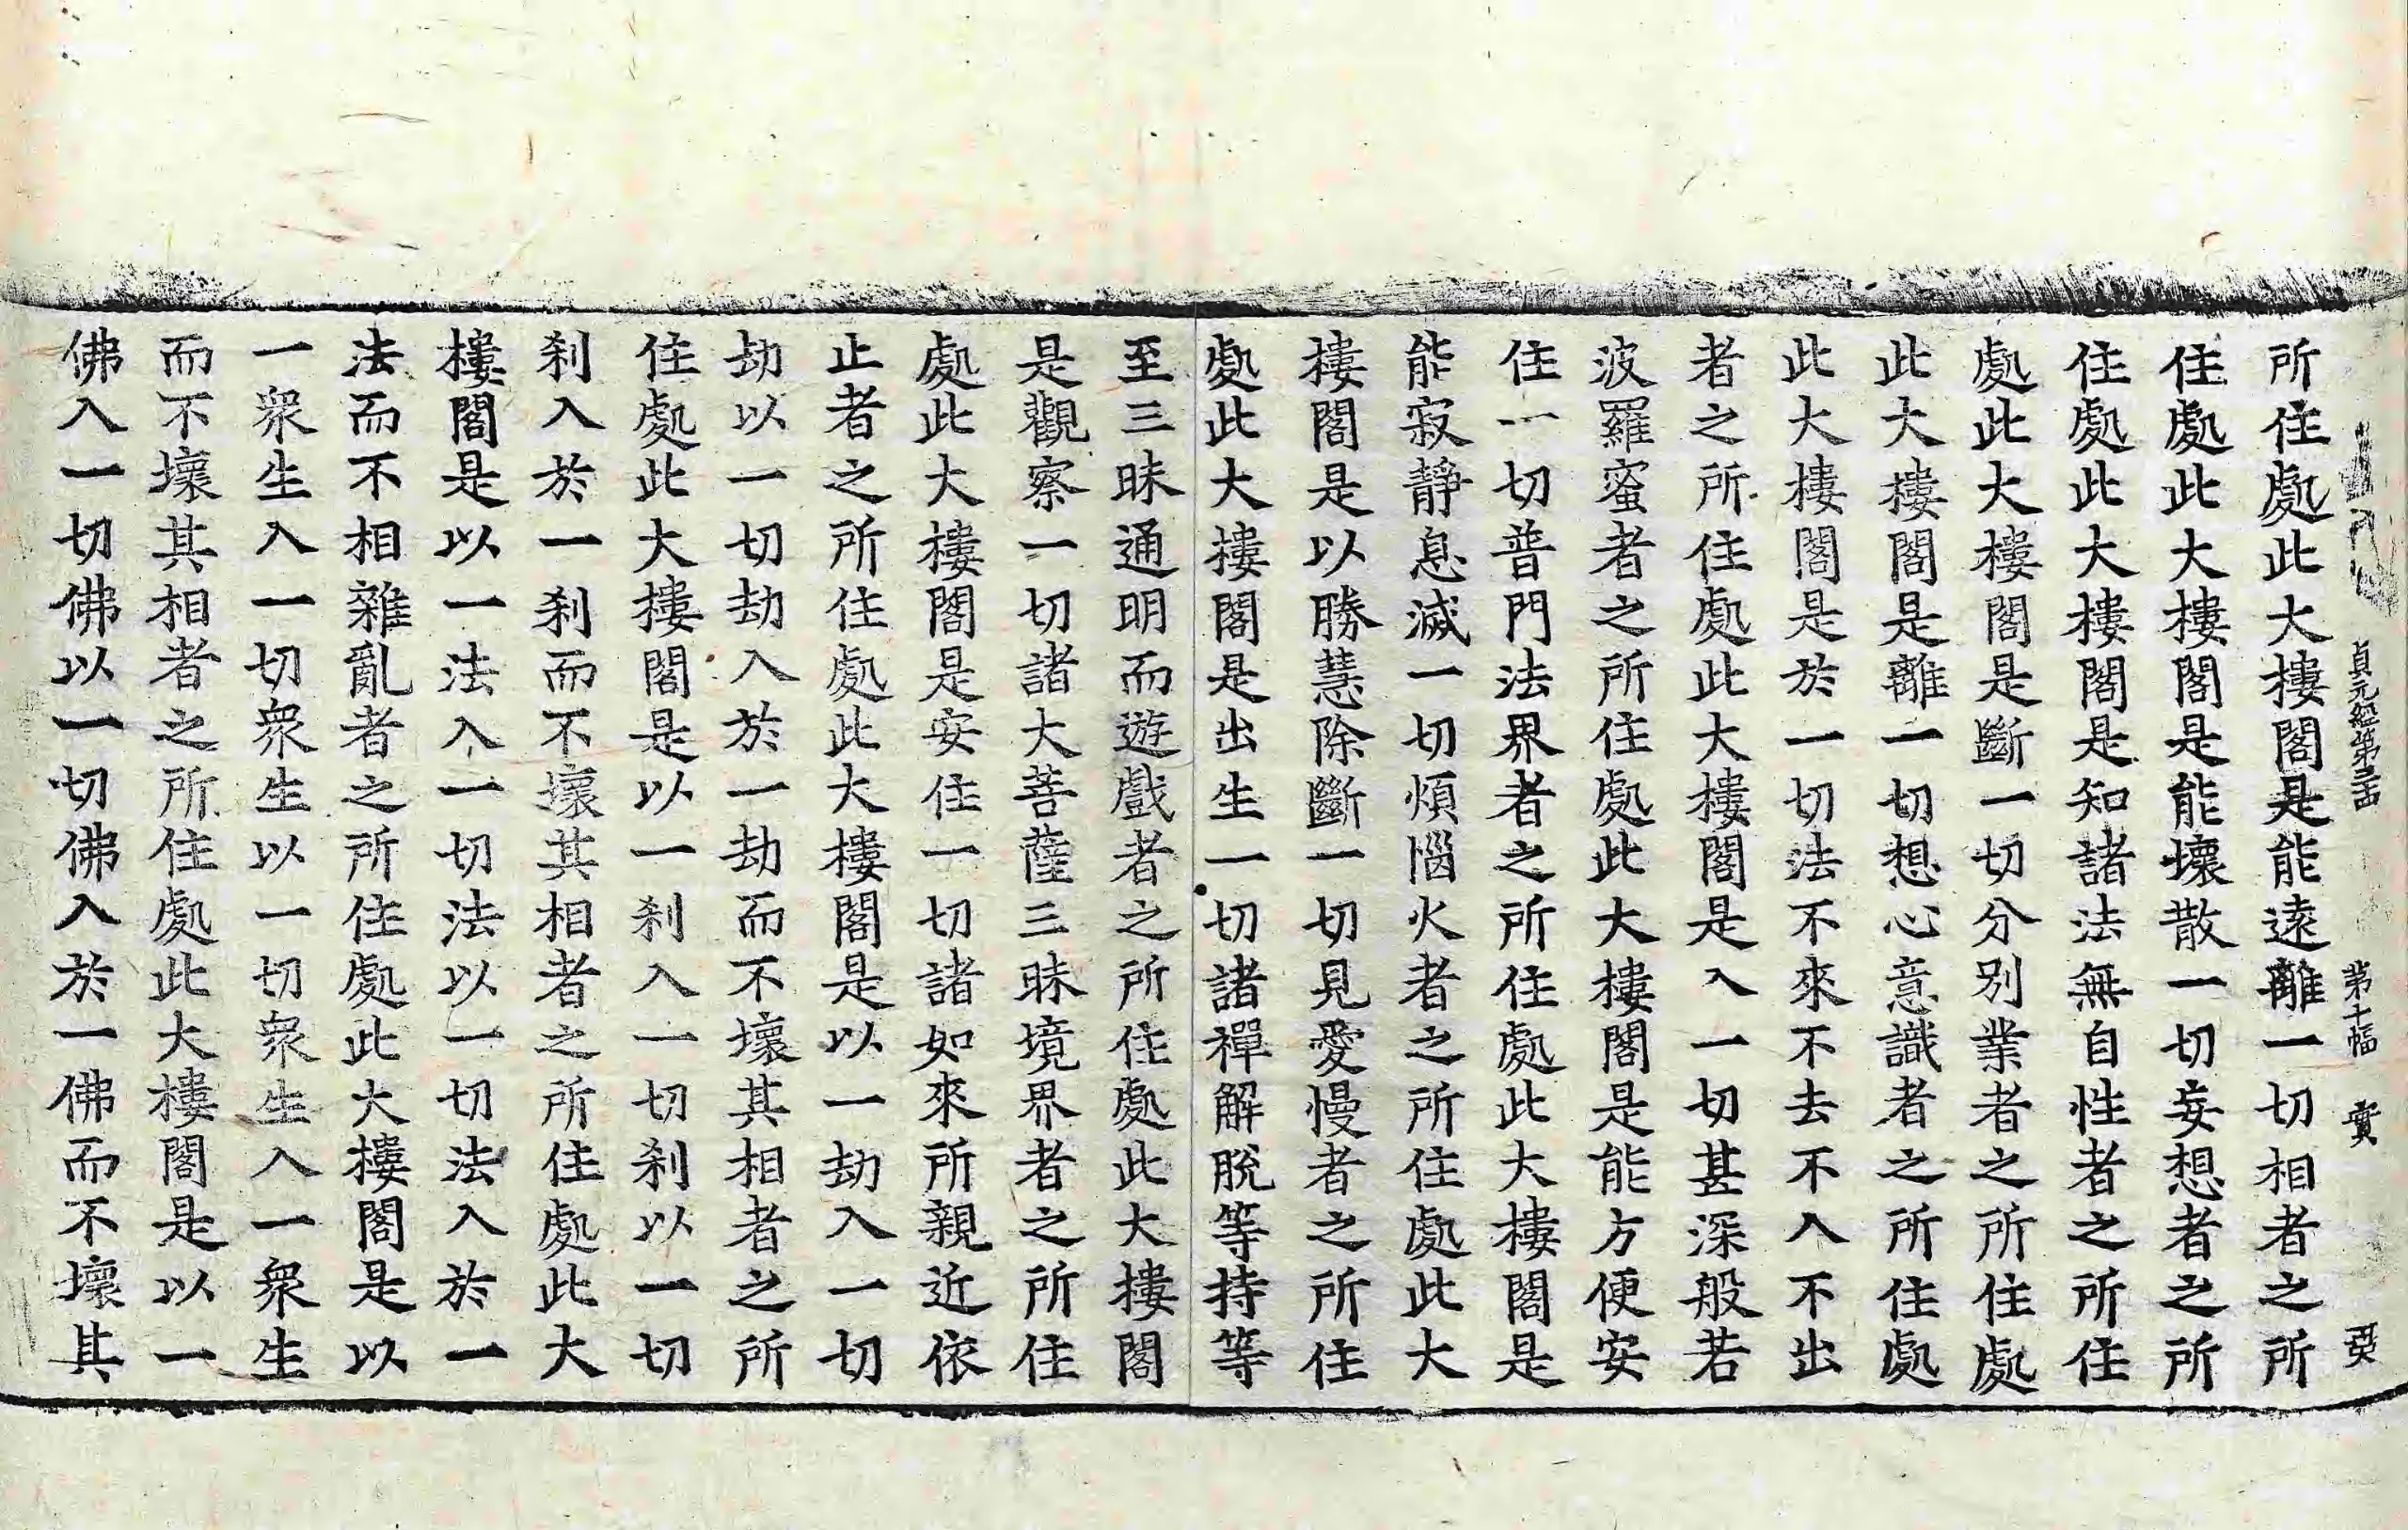 貞元經第三四 第十幅 實 亞
所住處此大樓閣是能遠離一切相者之所
住處此大樓閣是能壞散一切妄想者之所
住處此大樓閣是知諸法無自性者之所住
處此大樓閣是斷一切分別業者之所住處
此大樓閣是離一切想心意識者之所住處
此大樓閣是於一切法不來不去不入不出
者之所住處此大樓閣是入一切甚深般若
波羅蜜者之所住處此大樓閣是能方便安
住一切普門法界者之所住處此大樓閣是
能寂靜息滅一切煩惱火者之所住處此大
樓閣是以勝慧除斷一切見愛慢者之所住
處此大樓閣是出生一切諸禪解脫等持等
至三昧通明而遊戲者之所住處此大樓閣
是觀察一切諸大菩薩三昧境界者之所住
處此大樓閣是安住一切諸如來所親近依
止者之所住處此大樓閣是以一劫入一切
劫以一切劫入於一劫而不壞其相者之所
住處此大樓閣是以一剎入一切剎以一切
剎入於一剎而不壞其相者之所住處此大
樓閣是以一法入一切法以一切法入於一
法而不相雜亂者之所住處此大樓閣是以
一衆生入一切衆生以一切衆生入一衆生
而不壞其相者之所住處此大樓閣是以一
佛入一切佛以一切佛入於一佛而不壞其